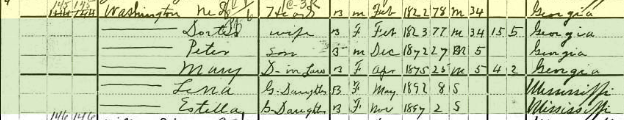 145 145 Washington Ned Head B m Feb 1822 78 m 34 Georgia
—— wife B F Feb 1823 77 m 34 15 5 Georgia
—— Peter son B m Dec 1872 27 5 Georgia
—— Mary D-in Law B F Apr 1875 25 m 5 4 2 Georgia
—— Lena G. Daughter B F May 1892 8 S Mississippi
—— Estella G. Daughter B F Nov 1897 2 S Mississippi
146 146